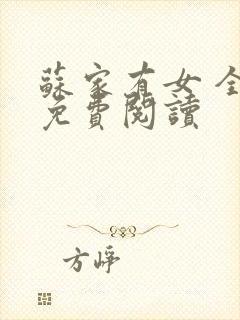 蘇家有女全
免費閱讀
方崢